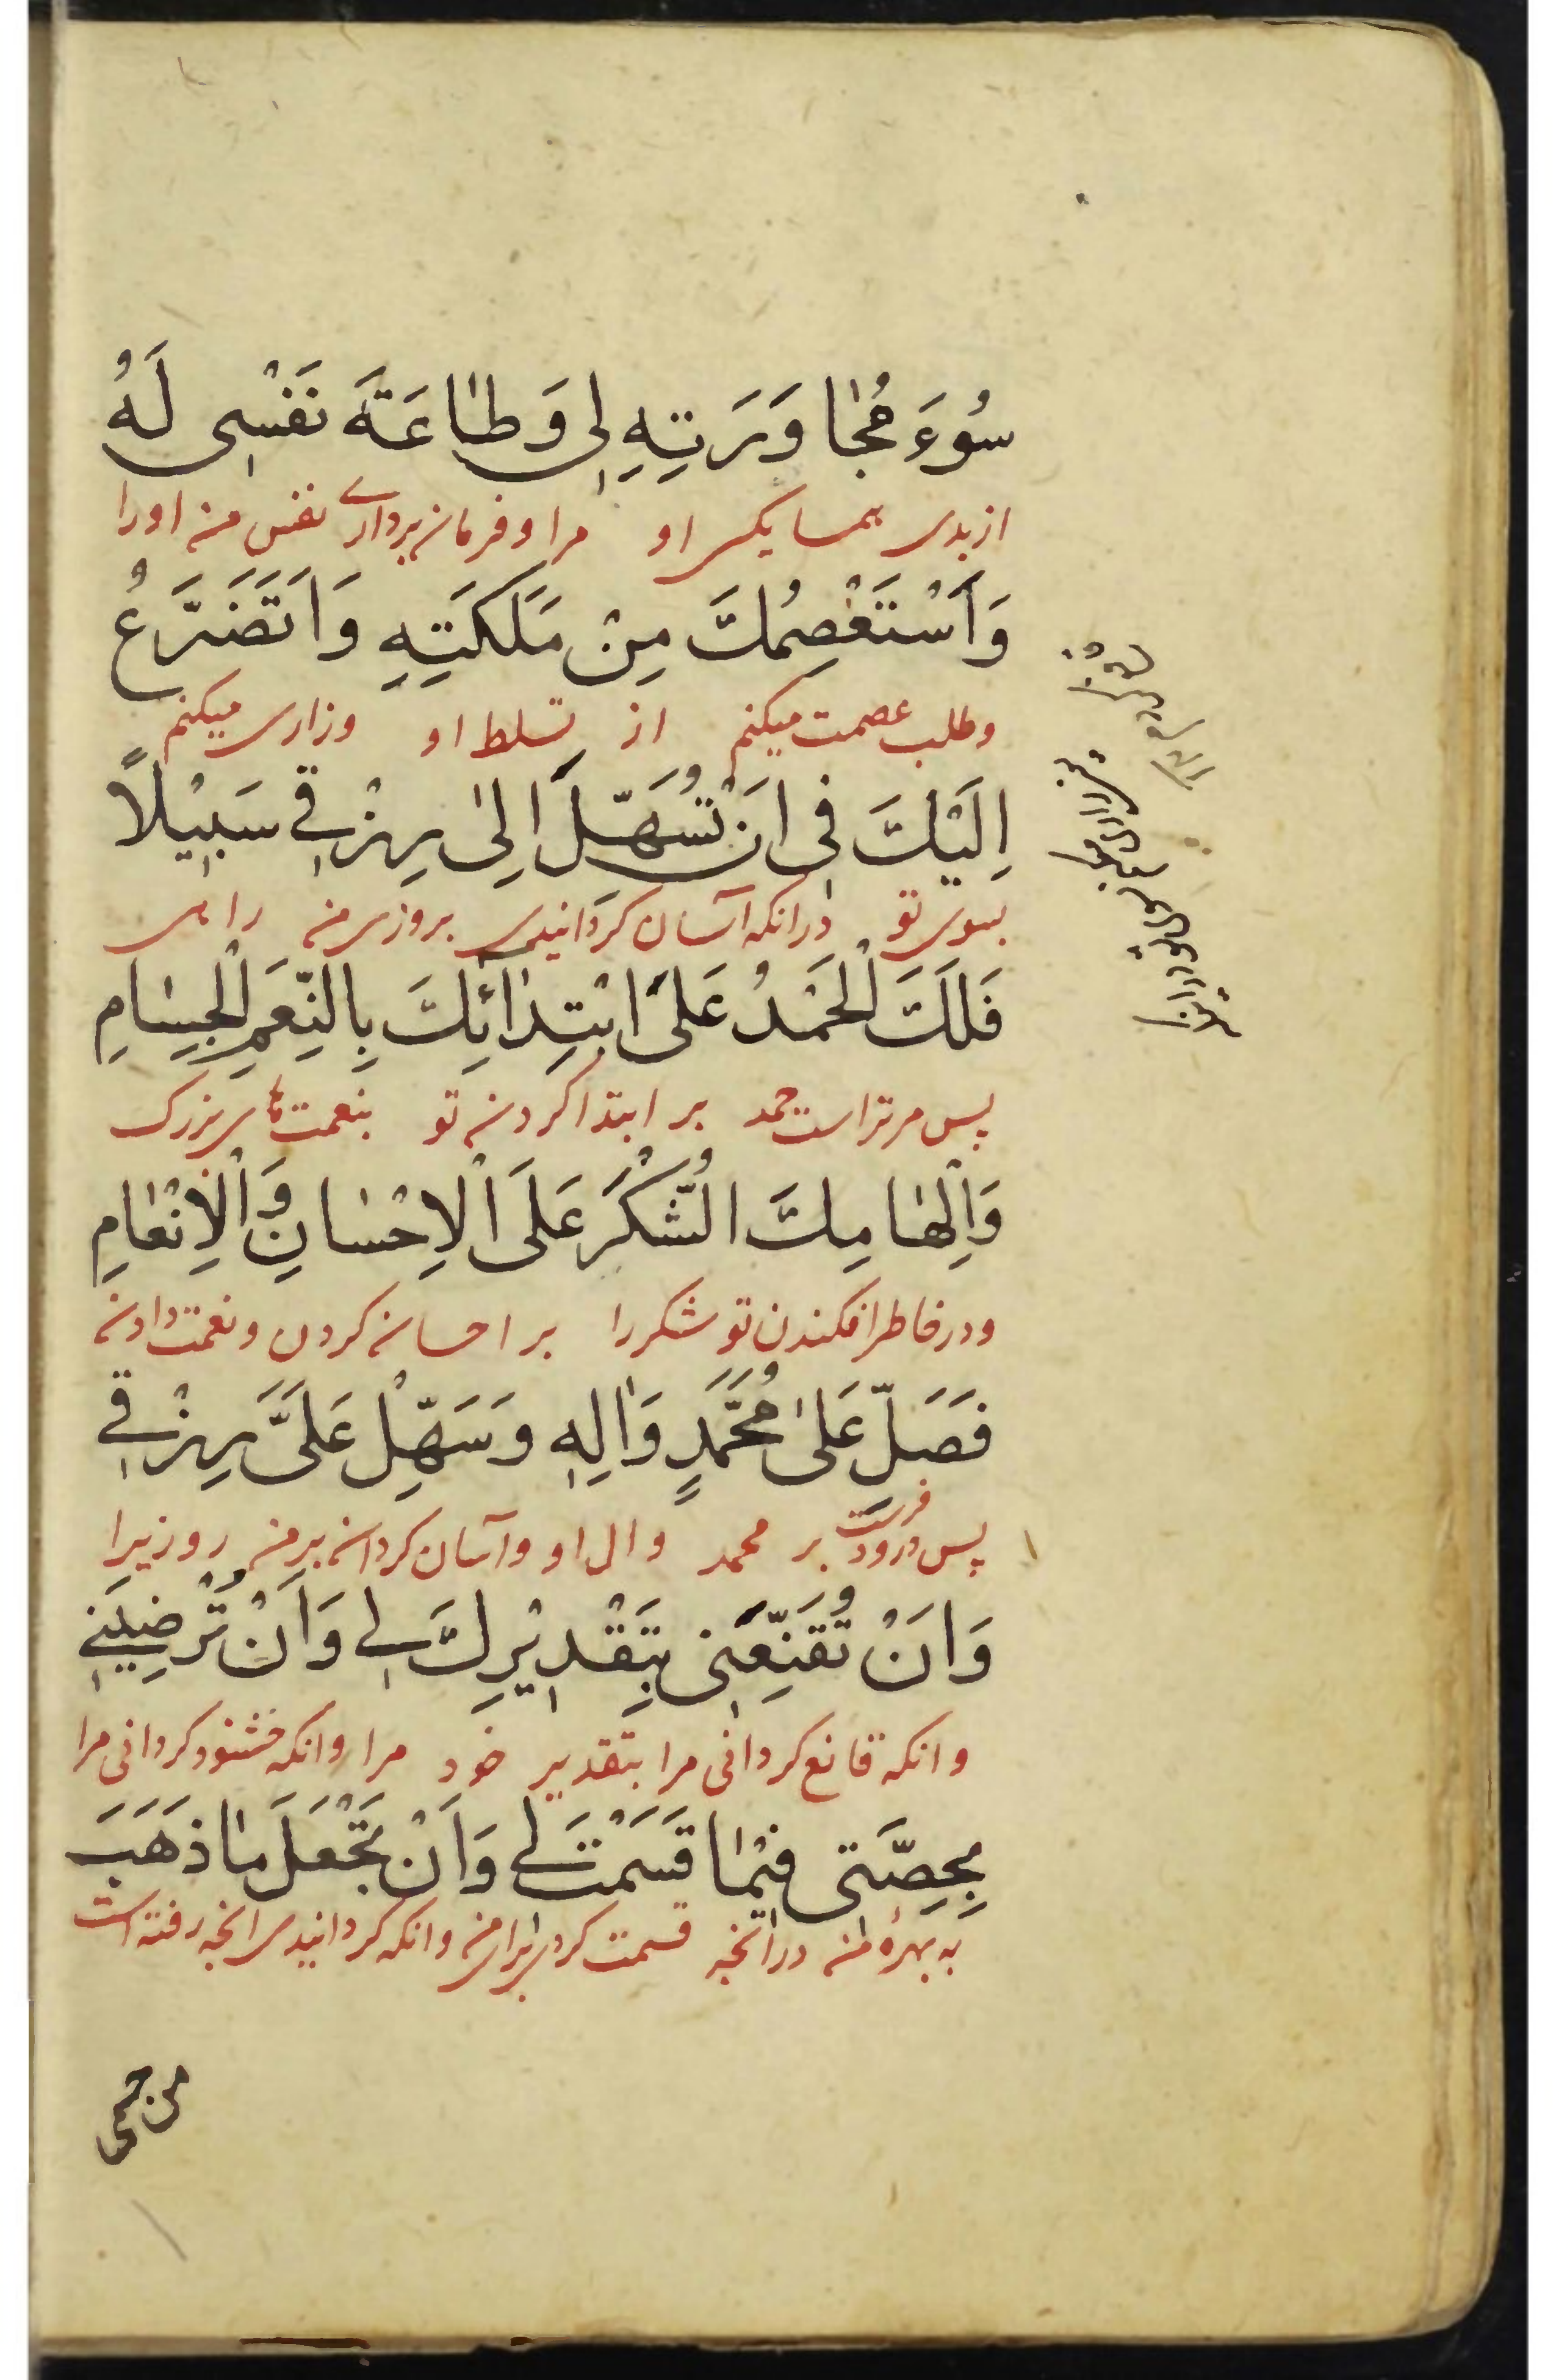 سُوءَ مُجٰاوَرَتِهِ لِى وَطٰاعَةَ نَفْسِى لَهُ
از بدی همسایکی او مرا و فرمان برداری نفس من اورا
وَاَسْتَعْصِمُكَ مِنْ مَلَكَتِهِ وَاَتَضَرَّعُ
وطلب عصمت میکنم از تسلط او وزاری میکنم
اِلَيْكَ فِى اَنْ تُسَهِّلَ اِلىٰ رِزْقِي سَبِيْلاً
بسوی تو درانکه آسان کردانیدی بروزی من راهی
فَلَكَ الْحَمْدُ عَلىٰ ابْتِدٰائِكَ بِالنِّعَمِ الْجِسٰامِ
پس مر تراست حمد بر ابتدا کردن تو بنعمت های بزرک
وَاِلْهٰامِكَ الشُّكْرَ عَلَى الْاِحْسٰانِ وَالْاِنْعٰامِ
ودر خاطر افکندن تو شکررا بر احسان کردن ونعمت دادن
فَصَلِّ عَلىٰ مُحَمَّدٍ وَاٰلِهِ وَسَهِّلْ عَلَىَّ رِزْقِي
پس درود فرست بر محمد وال او وآسان کردان بر من روزیرا
وَاَنْ تُقَنِّعَنِى بِتَقْدِيْرِكَ لِي وَاَنْ تُرْضِيَنِي
وانکه قانع کردانی مرا بتقدیر خود مرا وانکه خشنود کردانی مرا
بِحِصَّتِى فِيْمٰا قَسَمْتَ لِي وَاَنْ تَجْعَلَ مٰا ذَهَبَ
به بهرهٔ من درانچه قسمت کردی برای من وانکه کردانیدی انچه رفته است
من جسمی